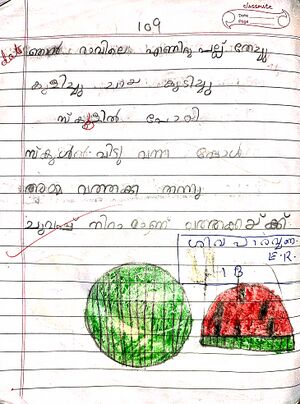 classmate
Date
Page
109
ഞാൻ രാവിലെ എണിറ്റു പല്ല് തേച്ചു
കുളിച്ചു ചായ കുടിച്ചു
സ്കൂളിൽ പോയി
സ്കൂൾ വിട്ടു വന്ന പ്പോൾ
അമ്മ വത്തക്ക തന്നു
ചുവപ്പ് നിറമാണ് വത്തക്കയ്ക്ക്
ശിവ പാർവ്വണ
E.R.
1 B